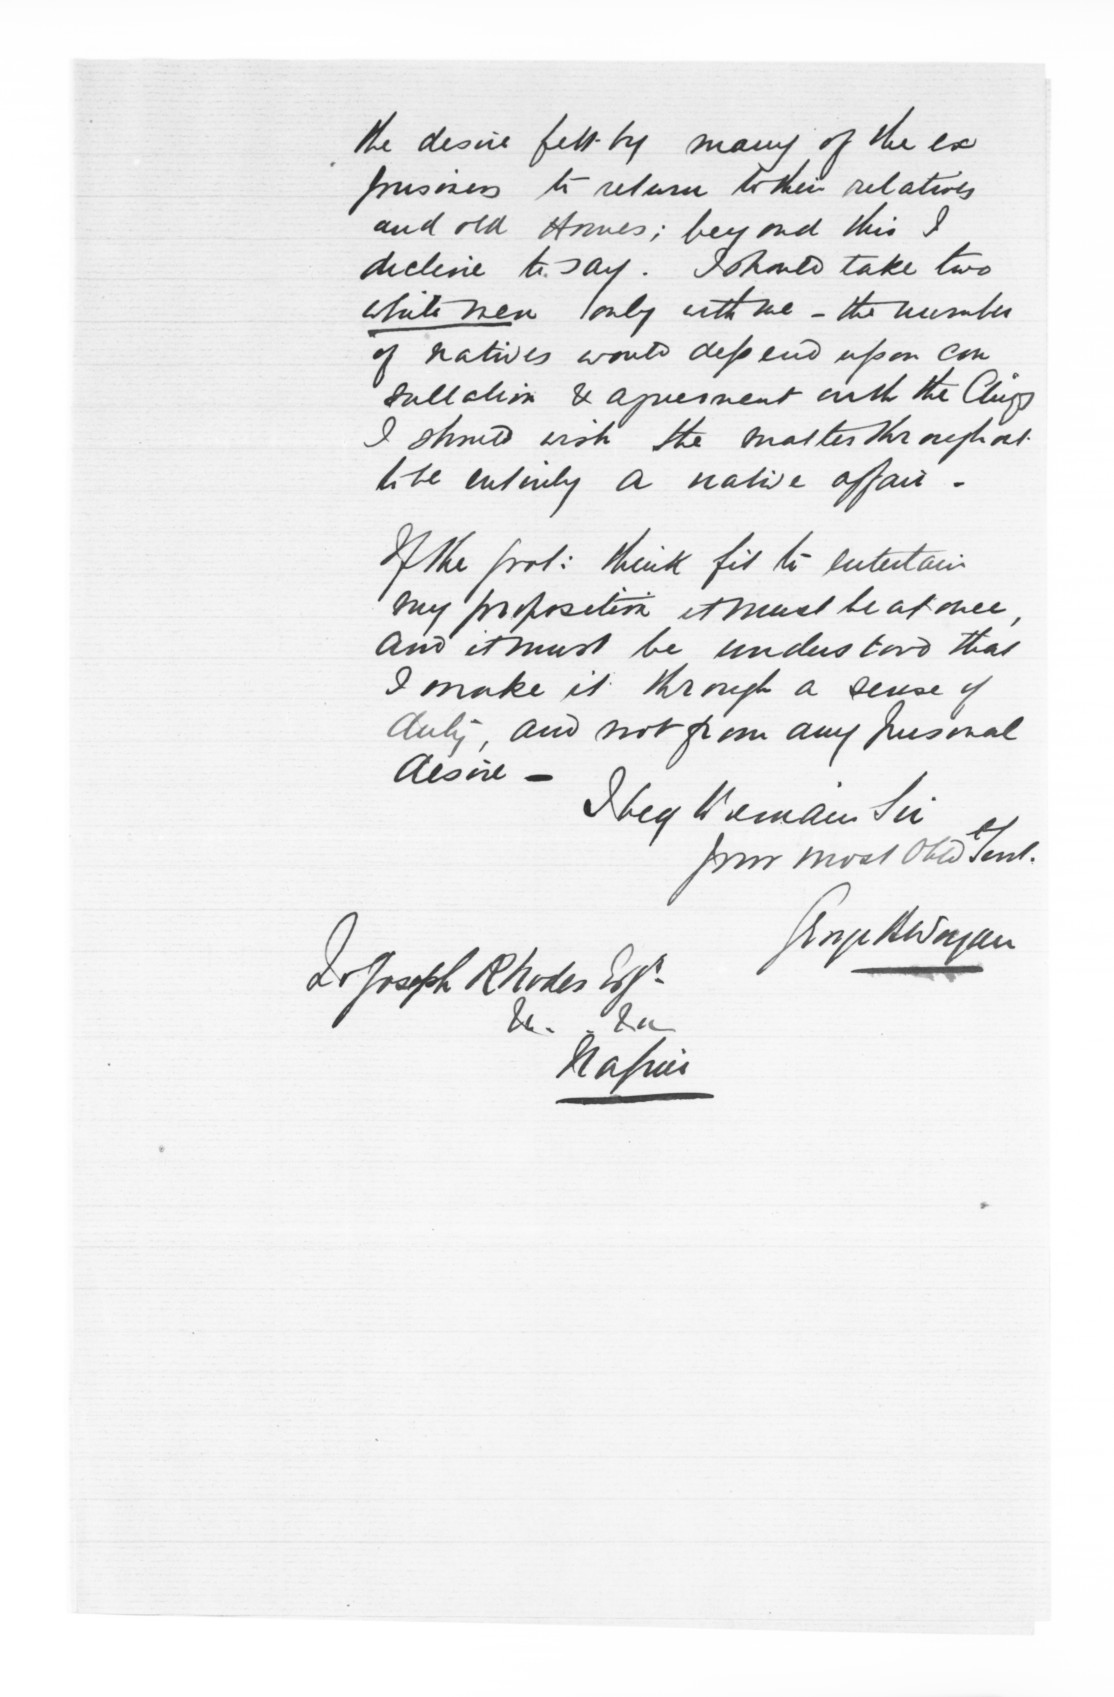 the desire felt by many of the ex
prisoners to return to their relatives
and old Homes; beyond this I
decline to say. I should take two
white men only with me - the number
of natives would depend upon con
sultation & agreement with the Chiefs
I should wish the matter throughout
to be entirely a native affair -
If the Govt: think fit to entertain
my proposition it must be at once,
and it must be understood that
I make it through a sense of
duty, and not from any personal
desire -
I beg to remain Sir
your most Obed Servt.
George H Worgan
To Joseph Rhodes Esqr.
&c. &c
Napier